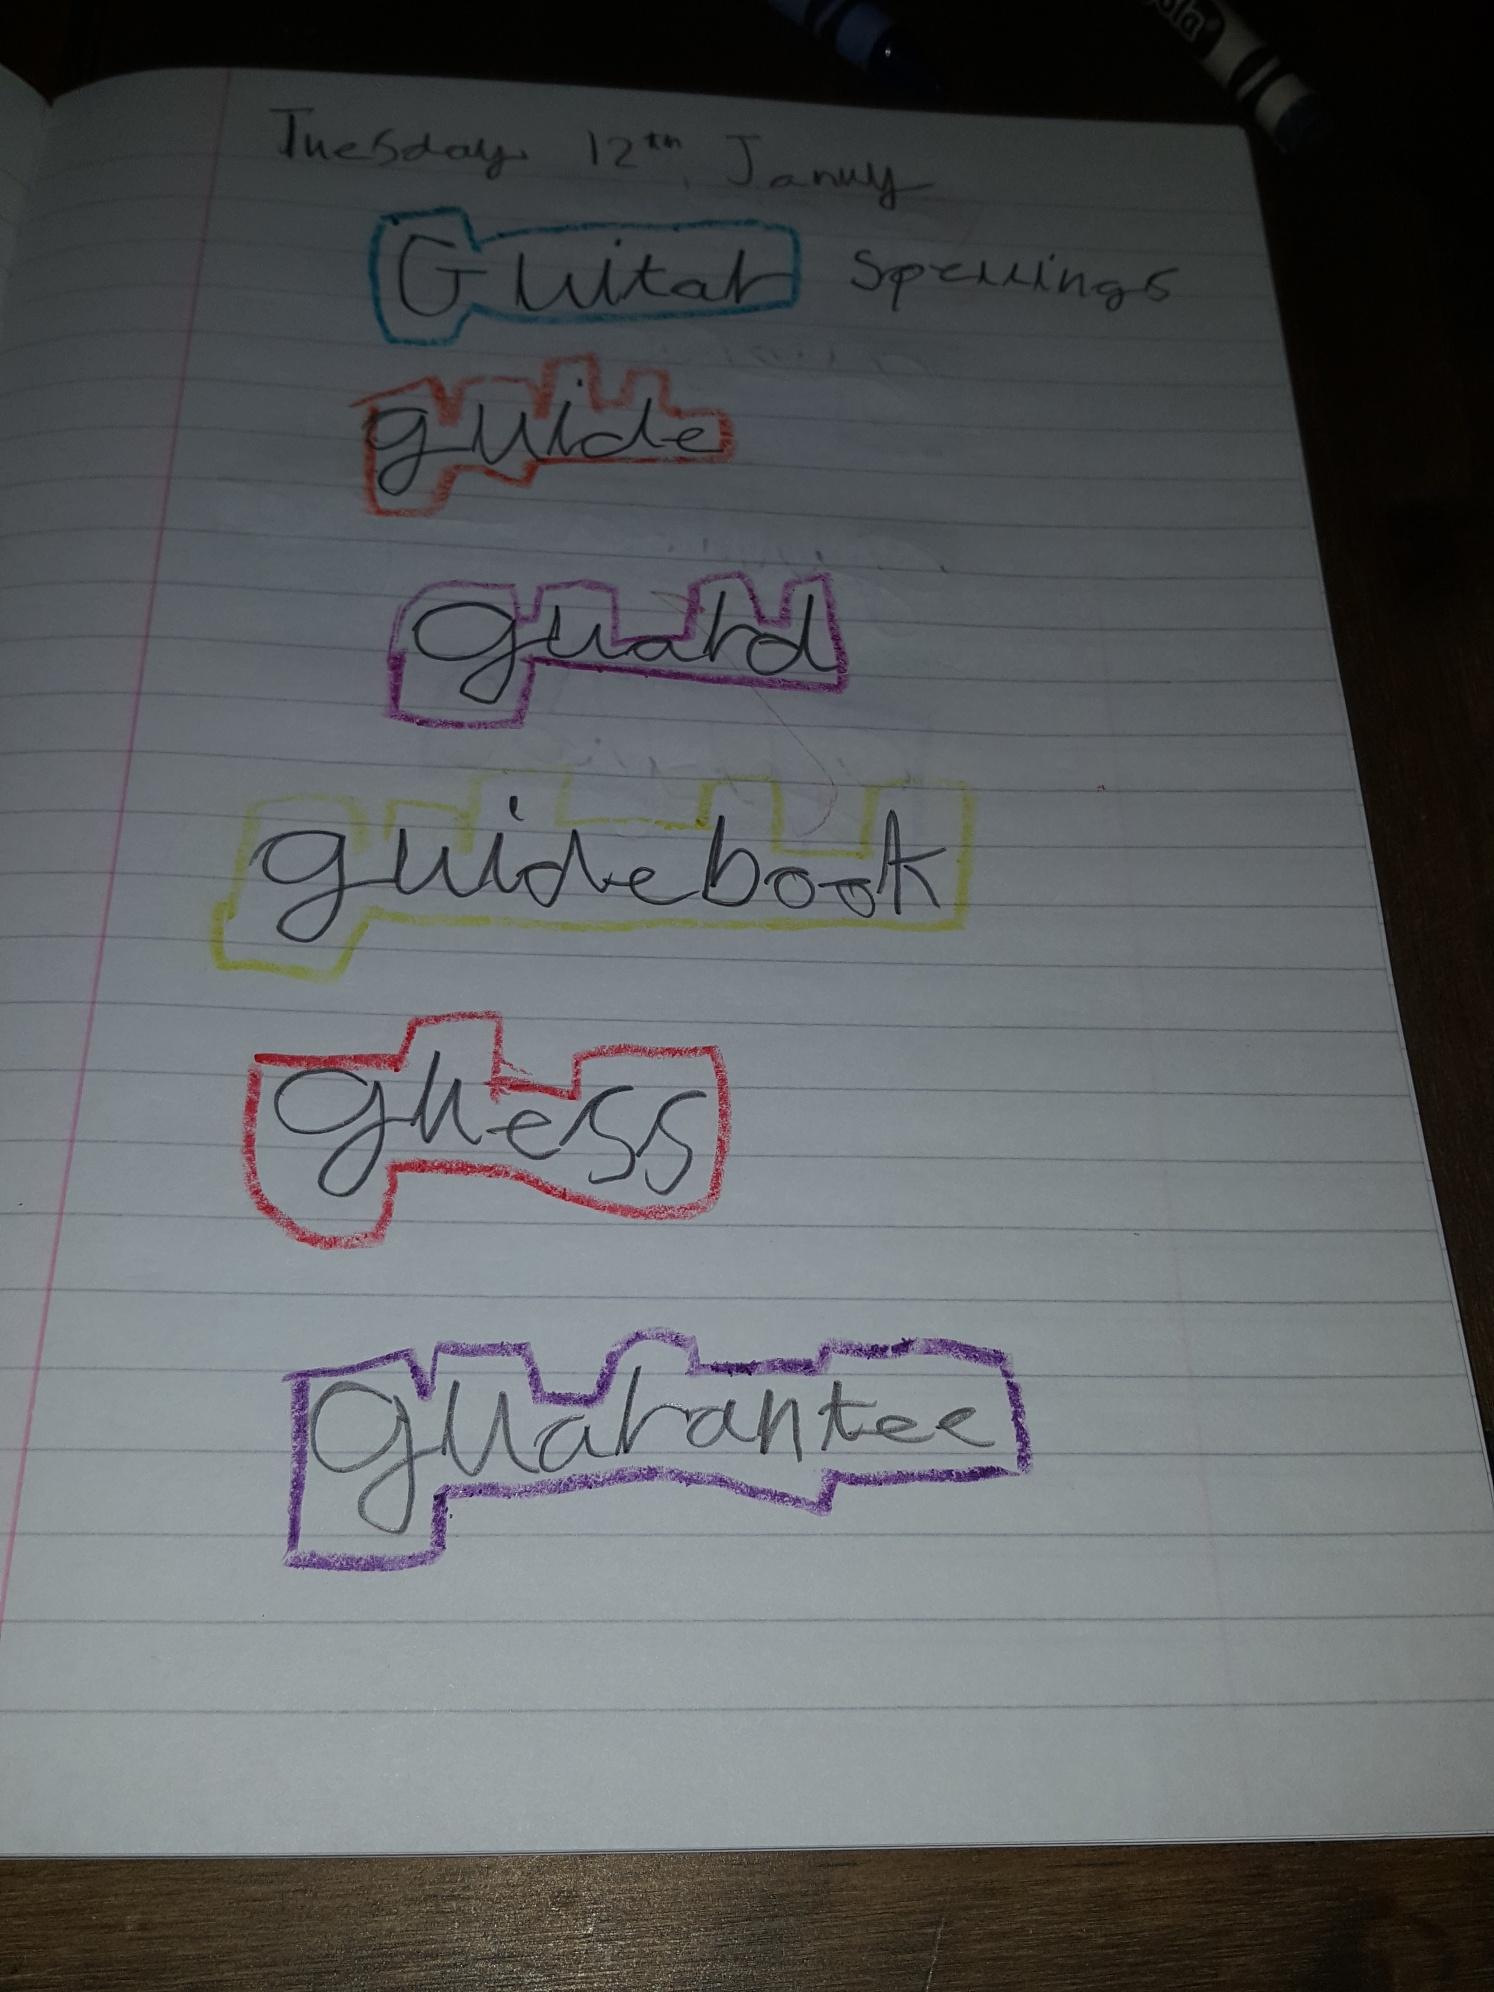 ola
Tuesday 12th January
Guitar Spellings
guide
guard
guidebook
guess
guarantee